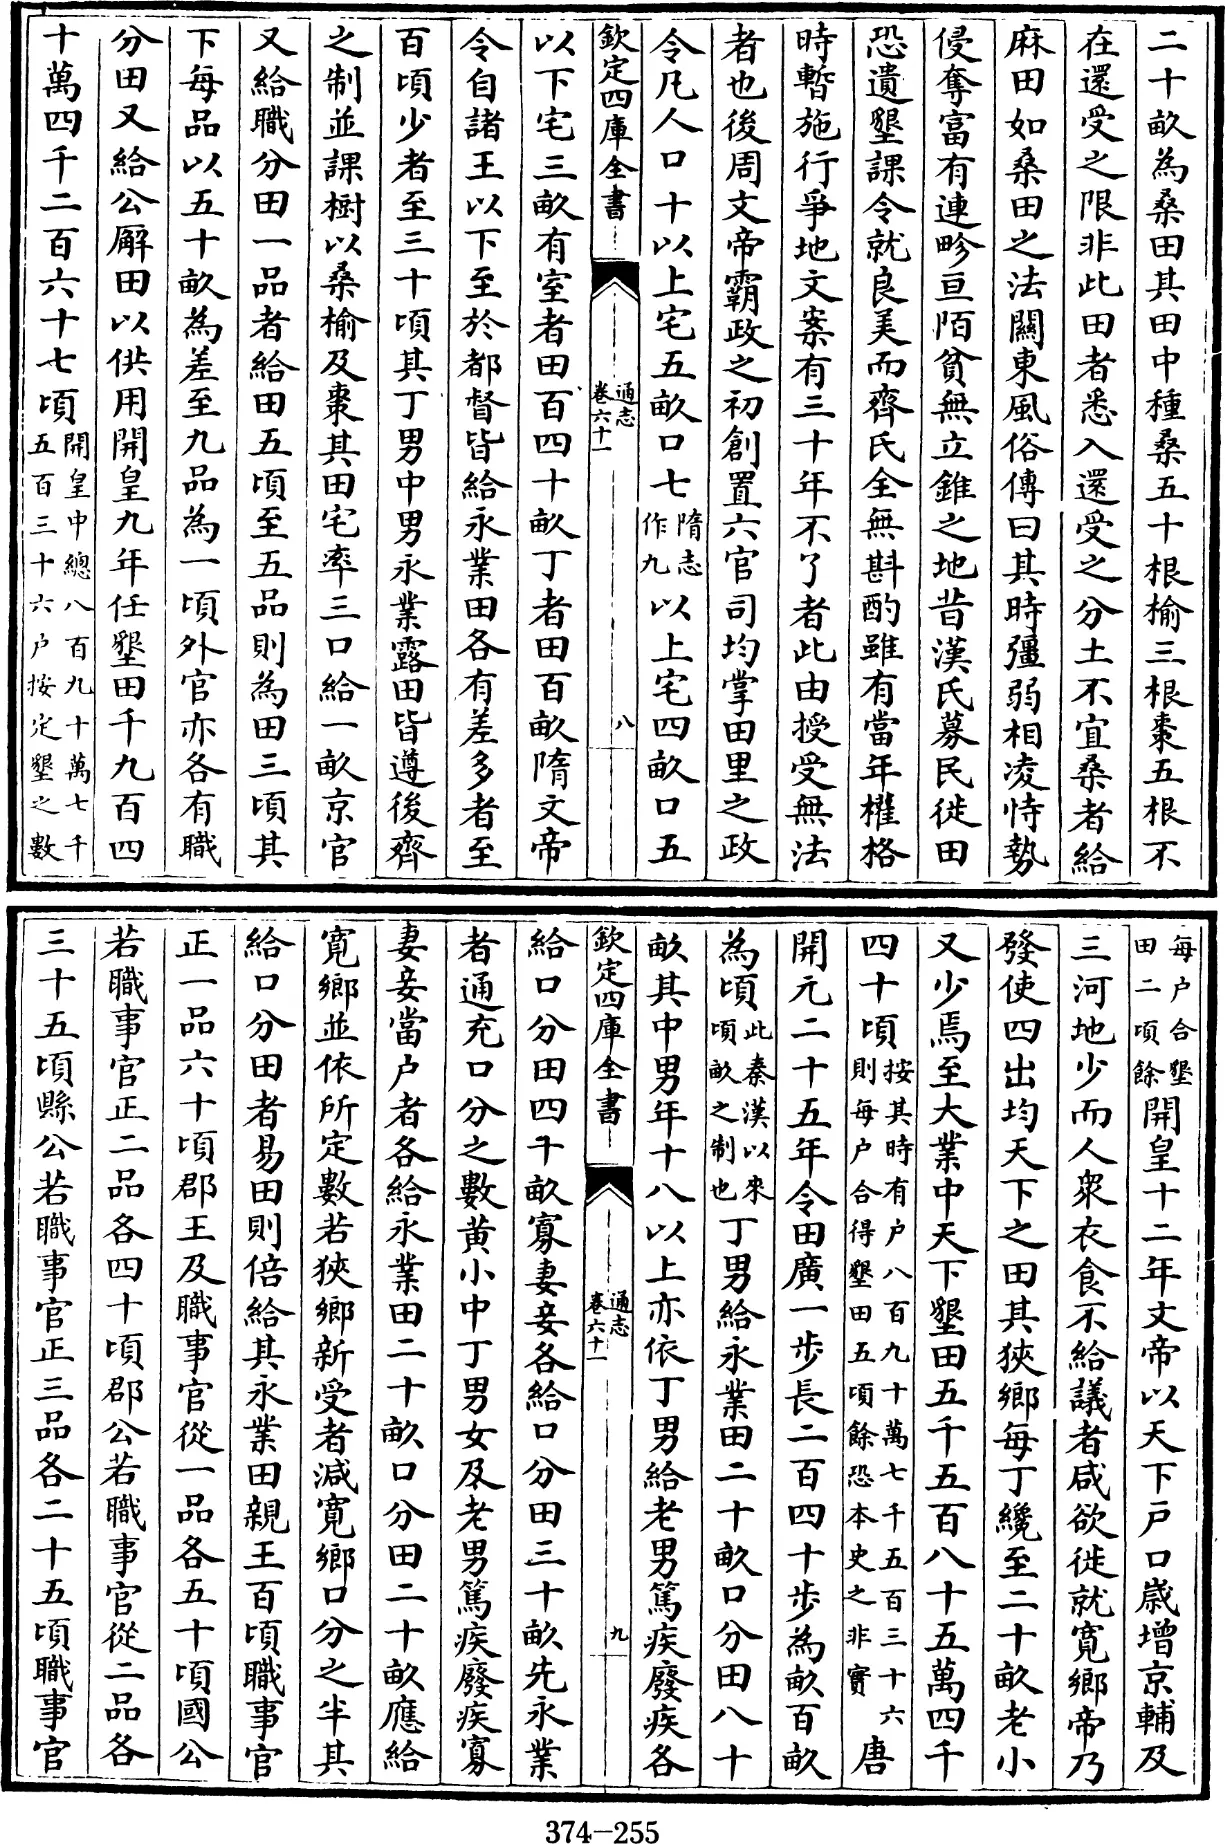 二十畝為桑田其田中種桑五十根榆三根棗五根不
在還受之限非此田者悉入還受之分土不宜桑者給
麻田如桑田之法關東風俗傳曰其時彊弱相凌恃勢
侵奪富有連畛亘陌貧無立錐之地昔漢氏募民徙田
恐遺墾課令就良美而齊氏全無斟酌雖有當年權格
時暫施行爭地文案有三十年不了者此由授受無法
者也後周文帝霸政之初創置六官司均掌田里之政
令凡人口十以上宅五畝口七隋志作九以上宅四畝口五
欽定四庫全書
通志
卷六十一
八
以下宅三畝有室者田百四十畝丁者田百畝隋文帝
令自諸王以下至於都督皆給永業田各有差多者至
百頃少者至三十頃其丁男中男永業露田皆遵後齊
之制並課樹以桑榆及棗其田宅率三口給一畝京官
又給職分田一品者給田五頃至五品則為田三頃其
下每品以五十畝為差至九品為一頃外官亦各有職
分田又給公廨田以供用開皇九年任墾田千九百四
十萬四千二百六十七頃開皇中總八百九十萬七千五百三十六户按定墾之數
每户合墾田二頃餘開皇十二年文帝以天下戸口歲增京輔及
三河地少而人衆衣食不給議者咸欲徙就寛鄉帝乃
發使四出均天下之田其狹鄉每丁纔至二十畝老小
又少焉至大業中天下墾田五千五百八十五萬四千
四十頃按其時有户八百九十萬七千五百三十六則每户合得墾田五頃餘恐本史之非實唐
開元二十五年令田廣一步長二百四十步為畝百畝
為頃此秦漢以來頃畝之制也丁男給永業田二十畝口分田八十
畝其中男年十八以上亦依丁男給老男篤疾廢疾各
欽定四庫全書
通志
卷六十一
九
給口分田四十畝寡妻妾各給口分田三十畝先永業
者通充口分之數黄小中丁男女及老男篤疾廢疾寡
妻妾當户者各給永業田二十畝口分田二十畝應給
寛鄉並依所定數若狹鄉新受者減寛鄉口分之半其
給口分田者易田則倍給其永業田親王百頃職事官
正一品六十頃郡王及職事官從一品各五十頃國公
若職事官正二品各四十頃郡公若職事官從二品各
三十五頃縣公若職事官正三品各二十五頃職事官
374-255